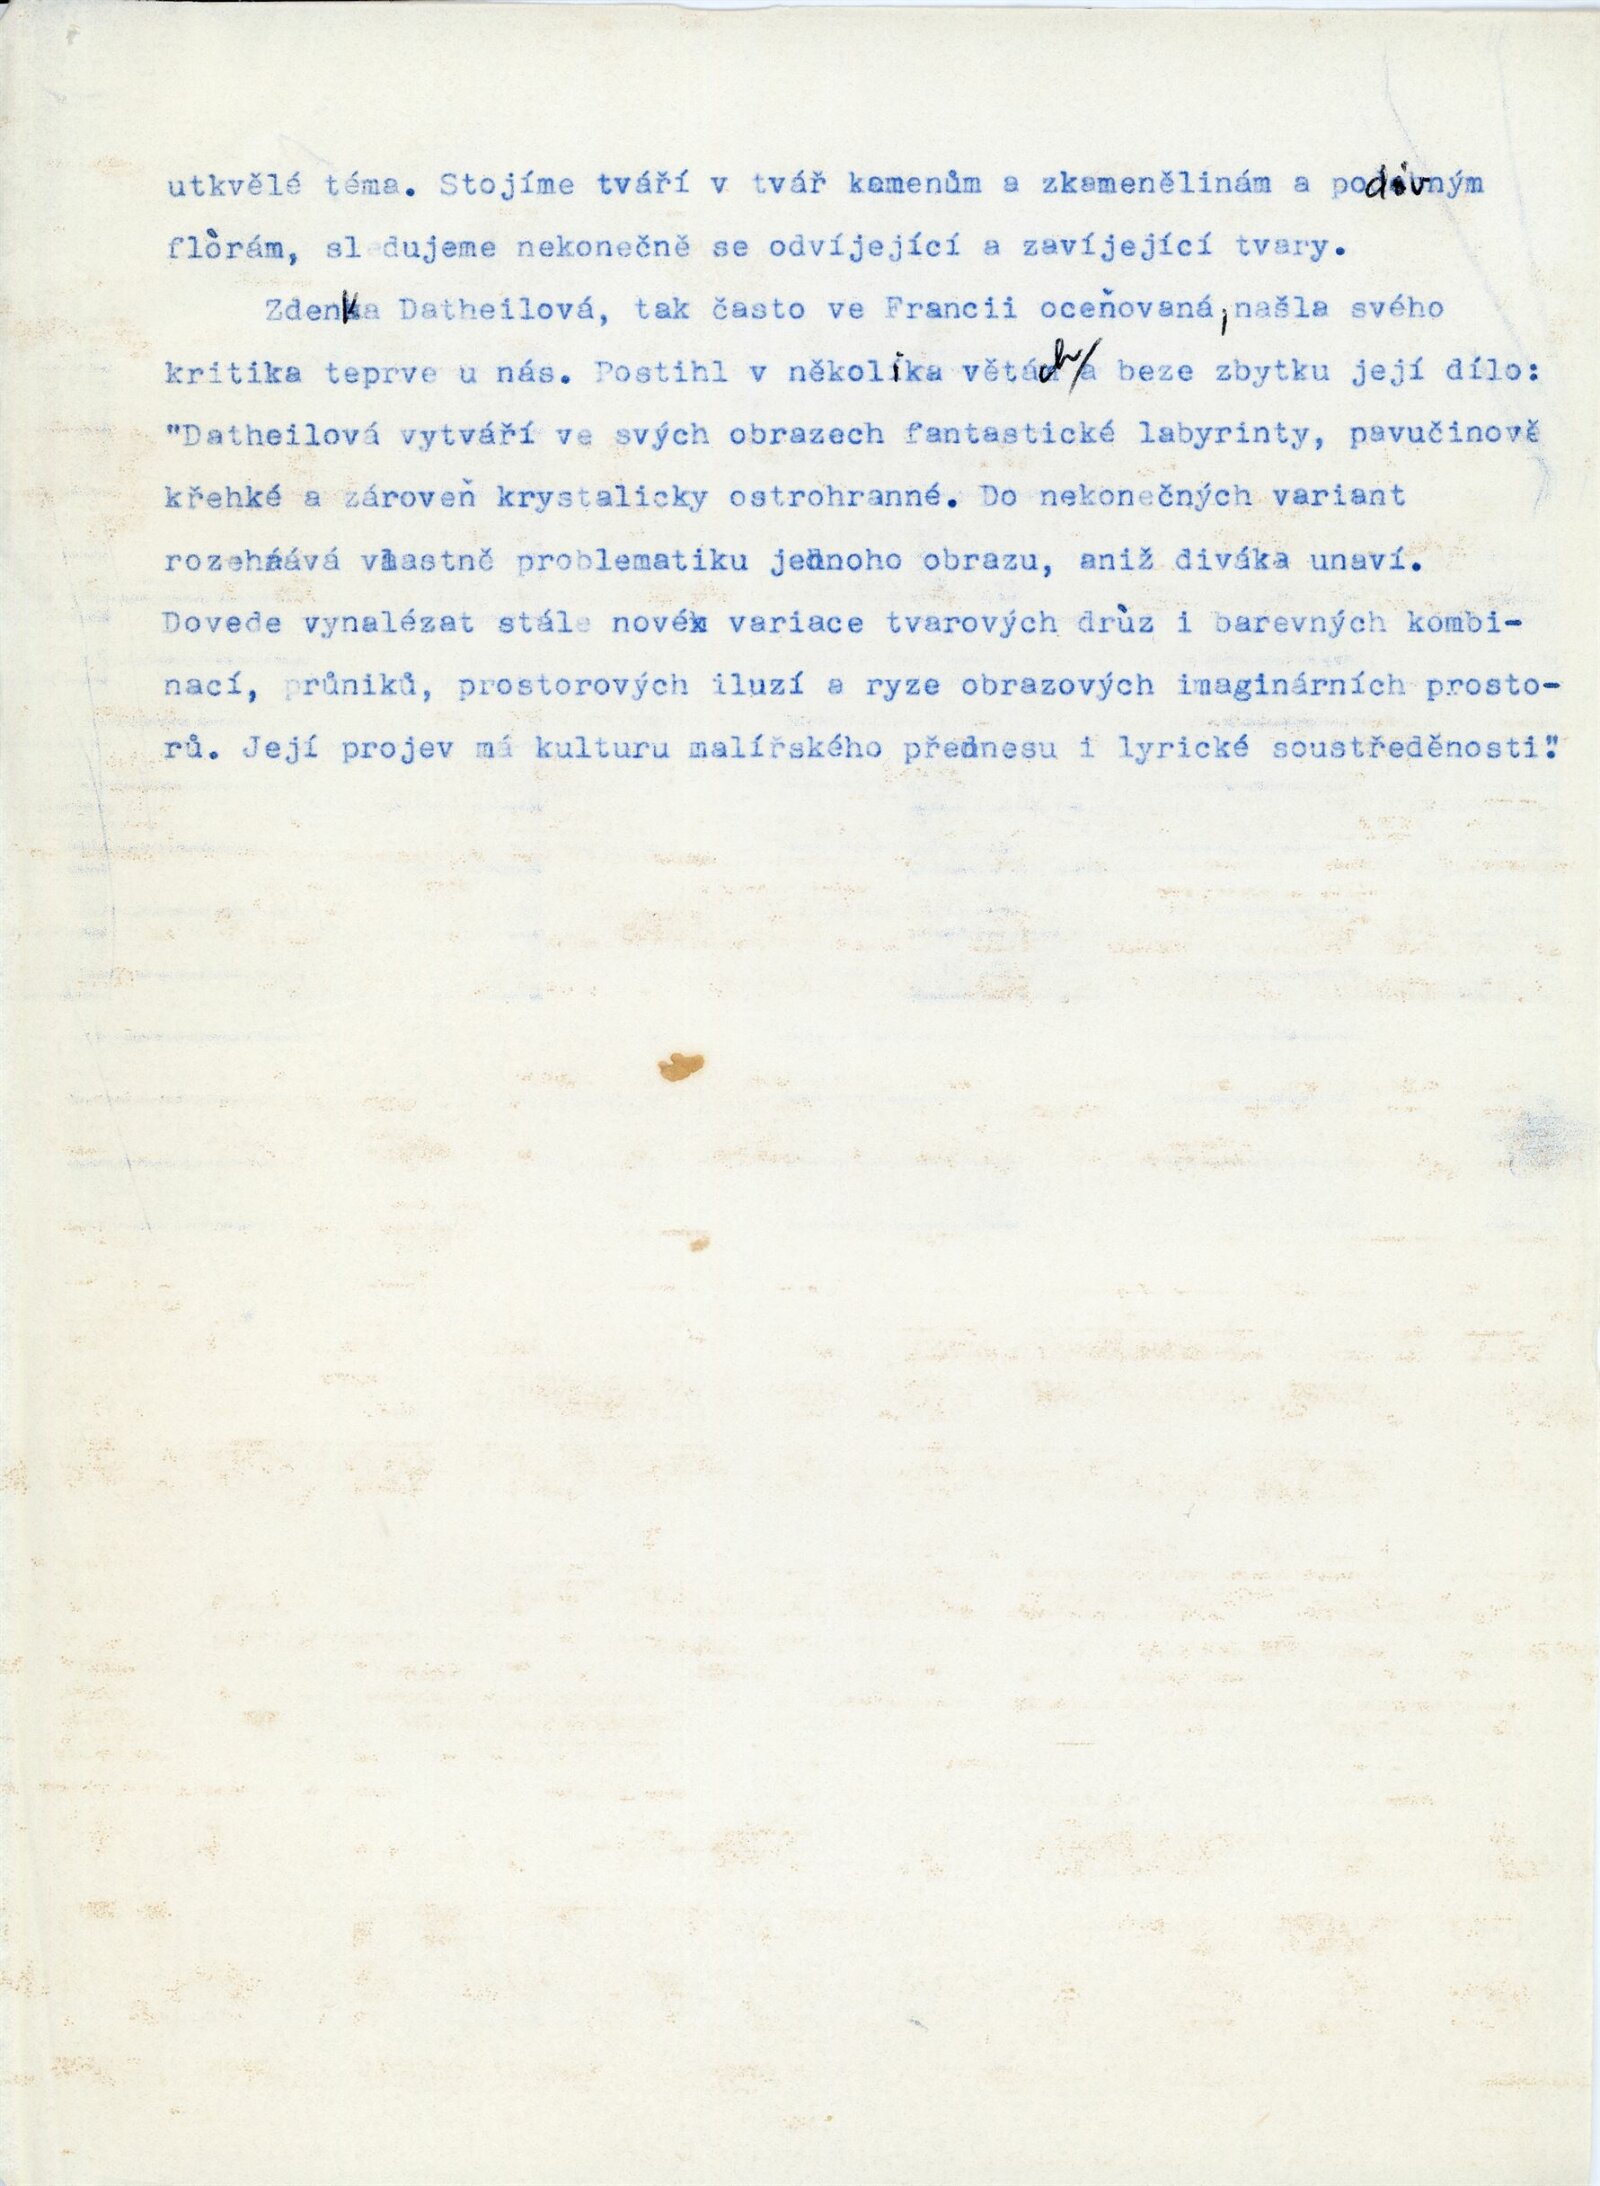 utkvělé téma. Stojíme tváří v tvář kamenům a zkamenělinám a podivným
flòrám, sledujeme nekonečně se odvíjející a zavíjející tvary.
Zdenka Datheilová, tak často ve Francii oceňovaná, našla svého
kritika teprve u nás. Postihl v několika větách a beze zbytku její dílo:
"Datheilová vytváří ve svých obrazech fantastické labyrinty, pavučinově
křehké a zároveň krystalicky ostrohranné. Do nekonečných variant
vlastně problematiku jednoho obrazu, aniž diváka unaví.
Dovede vynalézat stále nové variace tvarových drùz i barevných kombi-
nací, průniků, prostorových iluzí a ryze obrazových imaginárních prosto-
rů. Její projev má kulturu malířského přednesu i lyrické soustředěnosti."